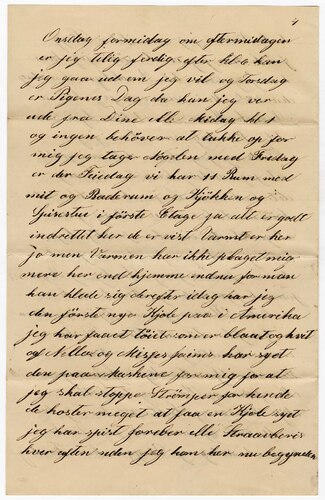 4
Onsdag formidag om eftermidagen
er jeg tilig ferdig efter kl 6 kan
jeg gaa ud om jeg vil og Torsdag
er Pigenes Dag da kan jeg ver
ude fra Dine Midag kl 1
og ingen behöver at lukke op for
mig jeg tager Nöglen med Fredag
er der Feiedag vi har 11 Rum med
mit og Baderum og Kjökken og
Spisestue i förste Etage ja alt er godt
indrettet her de er vist Varmt er her
jo men Varmen har ikke plaget mig
mere her end hjemme endnu for man
kan klede sig derefter idag har jeg
den förste nye Kjole paa i Amerika
jeg har faaet töiet som er blaat og hvit
af Mella og Misses Jains har syet
den paa Maskine for mig for at
jeg skal stoppe Strömper for hende
de koster meget at faa en Kjole syet
jeg har spist Jordber elle Straaberis
hver aften uden jeg kan her nu begynder